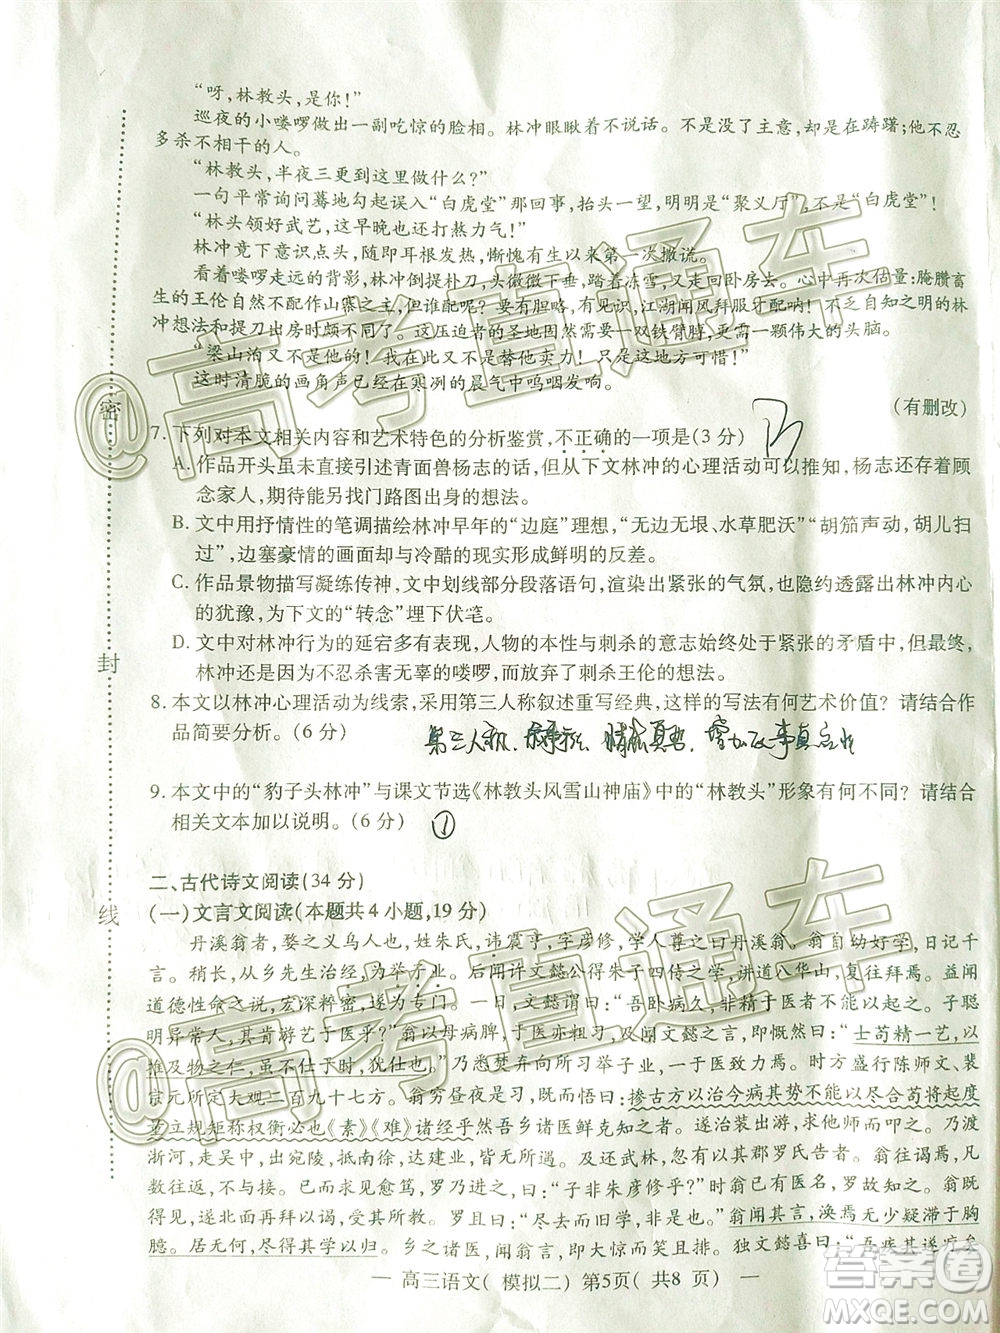 “呀,林教头,是你!”
巡夜的小喽啰做出一副吃惊的脸相。林冲眼瞅着不说话。不是没了主意,却是在踌躇;他不忍
多杀不相干的人。
“林教头,半夜三更到这里做什么?”
一句平常询问蓦地勾起误入“白虎堂”那回事,抬头一望,明明是“聚义厅”,怎么又是“白虎堂”!
“林头领好武艺,这早晚还打熬力气!”
林冲竟下意识点头,随即耳根发热,惭愧有生以来第一次撒谎。
看着喽啰走远的背影,林冲倒提朴刀,头微微下垂,踏着冻雪,又走回卧房去。心中再次估量:腌臜畜
生的王伦自然不配作山寨之主,但谁配呢?要有胆略,有见识,江湖闻风拜服才配哟!不乏自知之明的林
冲想法和提刀出房时颇不同了。这压迫者的圣地固然需要一双铁臂膊,更需要一颗伟大的头脑。
“梁山泊又不是他的!我却也不是替他卖力!只是这地方可惜!”
这时清脆的画角声已经在寒冽的晨气中呜咽发响。
(有删改)
7. 下列对本文相关内容和艺术特色的分析鉴赏,不正确的一项是(3 分)
A. 作品开头虽未直接引述青面兽杨志的话,但从下文林冲的心理活动可以推知,杨志还有顾
念家人,期待以后寻找门路图个出身的想法。
B. 文中用抒情性的笔调描绘林冲早年的“边庭”理想,“无边无垠、水草肥沃”“胡笳声动,胡儿扫
过”,边塞豪情的画面却与冷酷的现实形成鲜明的反差。
C. 作品景物描写凝练传神,文中划线部分段落语句,渲染出紧张的气氛,也隐约透露出林冲内心
的犹豫,为下文的“转念”埋下伏笔。
D. 文中对林冲行为的延宕多有表现,人物的本性与刺杀的意志始终处于紧张的矛盾中,但最终,
林冲还是因为不忍杀害无辜的喽啰,而放弃了刺杀王伦的想法。
8. 本文以林冲心理活动为线索,采用第三人称叙述重写经典,这样的写法有何艺术价值?请结合作
品简要分析。(6 分)
第三人称,
9. 本文中的“豹子头林冲”与课文节选《林教头风雪山神庙》中的“林教头”形象有何不同?请结合
相关文本加以说明。(6 分) ①
二、古代诗文阅读(34 分)
(一)文言文阅读(本题共 4 小题,19 分)
丹溪翁者,婺之义乌人也,姓朱氏,讳震亨,字彦修,学人尊之曰丹溪翁。翁自幼好学,日记千
言。稍长,从乡先生治经,为举子业。后闻许文懿公得朱子四传之学,讲道八华山,复往拜焉。益闻
道德性命之说,宏深粹密,遂为专门。一日,文懿谓曰:“吾卧病久,非精于医者不能以起之。子聪
明异常人,其肯游艺于医乎?”翁以母病脾,于医亦粗习,及闻文懿之言,即慨然曰:“士苟精一艺,以
推及物之仁,虽不仕于时,犹仕也。”乃悉焚弃向所习举子业,一于医致力焉。时方盛行陈师文、裴
宗元所定大观二百九十七方。翁穷昼夜是习,既而悟曰:“掺古方以治今病其势不能以尽合苟将起度
量立规矩称权衡必也《素》《难》诸经乎然吾乡诸医鲜克知之。遂治装出游,求他师而叩之。乃渡
浙河,走吴中,出宛陵,抵南徐,达建业,皆无所遇。及还武林,忽有以其郡罗氏告者。翁往谒焉,
凡数往返,不与接。已而求见愈笃,罗乃进之,曰:“子非朱彦修乎?”时翁已有医名,罗故知之。翁既
得见,遂北面再拜以谒,受其所教。罗且曰:“尽去而旧学,非是也。”翁闻其言,涣焉无少疑滞于胸
臆。居无何,尽得其学以归。乡之诸医,闻翁言,即大惊而笑且排。独文懿喜曰:“吾疾其遂瘳
— 高三语文( 模拟二) 第5页( 共8 页) —
密
封
线
@高考直通车
@高考直通车
答案圈
MXQE.COM